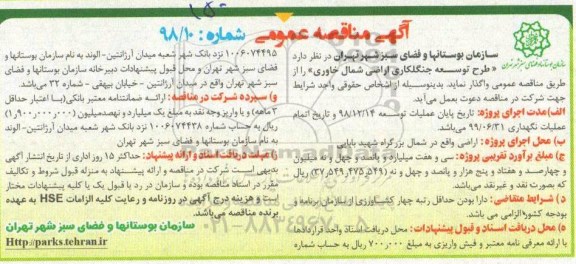 ۱۵۰
آگهی مناقصه عمومی شماره: ۹۸/۱۰
سازمان بوستانها و فضای سبز شهر تهران
سازمان بوستانها و فضای سبز شهر تهران در نظر دارد
« طرح توسعه جنگلکاری اراضی شمال خاوری» را از
طریق مناقصه عمومی واگذار نماید. بدینوسیله از اشخاص حقوقی واجد شرایط
جهت شرکت در مناقصه دعوت بعمل می‌آید.
الف) مدت اجرای پروژه: تاریخ پایان عملیات توسعه ۹۸/۱۲/۱۴ و تاریخ اتمام
عملیات نگهداری ۹۹/۰۶/۳۱ می‌باشد.
ب) محل اجرای پروژه : اراضی واقع در شمال بزرگراه شهید بابایی
ج) مبلغ برآورد تقریبی پروژه : سی و هفت میلیارد و پانصد و چهل و نه میلیون
و چهارصد و هفتاد و پنج هزار و پانصد و چهل و نه (۳۷,۵۴۹,۴۷۵,۵۴۹) ریال
که بصورت نقد و غیرنقد می‌باشد.
د) شرایط متقاضی: دارا بودن حداقل رتبه چهار کشاورزی از سازمان برنامه و
بودجه کشور الزامی می باشد.
ه) محل دریافت اسناد و قبول پیشنهادات : محل دریافت اسناد واحد قراردادها
با ارائه معرفی نامه معتبر و فیش واریزی به مبلغ ۷۰۰,۰۰۰ ریال به حساب شماره
۱۰۰۶۰۷۴۴۹۵ نزد بانک شهر شعبه میدان آرژانتین- الوند به نام سازمان بوستانها و
فضای سبز شهر تهران و محل قبول پیشنهادات دبیرخانه سازمان بوستانها و فضای
سبز شهر تهران واقع در میدان آرژانتین - خیابان بیهقی - شماره ۳۲ می‌باشد.
و) سپرده شرکت در مناقصه : ارائه ضمانتنامه معتبر بانکی (با اعتبار حداقل
۳ ماهه) و یا واریز وجه نقد به مبلغ یک میلیارد و نهصد میلیون (۱,۹۰۰,۰۰۰,۰۰۰)
ریال به حساب شماره ۱۰۰۶۰۷۴۴۳۸ نزد بانک شهر شعبه میدان آرژانتین - الوند
به نام سازمان بوستانها و فضای سبز شهر تهران
ز) مهلت دریافت اسناد و ارائه پیشنهاد: حداکثر ۱۵ روز اداری از تاریخ انتشار آگهی
بدیهی است شرکت در مناقصه و ارائه پیشنهاد به منزله قبول شروط و تکالیف
مقرر در اسناد مناقصه بوده و سازمان در رد یا قبول یک یا کلیه پیشنهادات مختار
است و هزینه درج آگهی در روزنامه و رعایت کلیه الزامات HSE به عهده
برنده مناقصه می‌باشد.
۰۲۱-۸۸۳۴۹۶۷۰
سازمان بوستانها و فضای سبز شهر تهران
Http://parks.tehran.ir